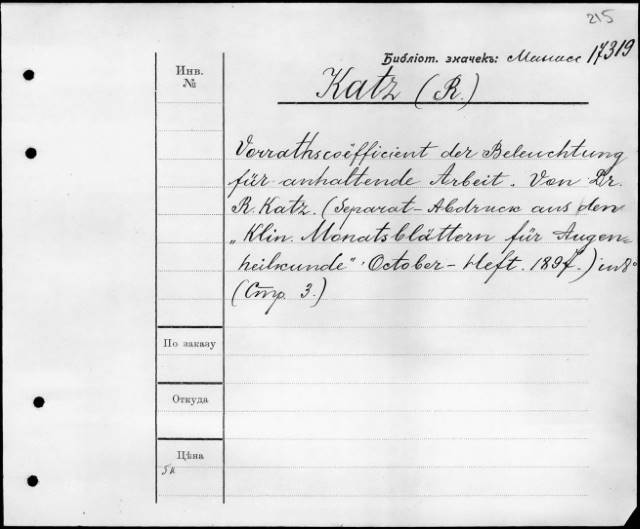 215
Библіот. значекъ: Манасс 17319
Инв.
№
Katz (R.)
Vorrathscoëfficient der Beleuchtung
für anhaltende Arbeit. Von Dr.
R. Katz. (Separat-Abdruck aus den
„Klin. Monatsblättern für Augen-
heilkunde" October-Heft. 1897.) in 8°
(Стр. 3.)
По заказу
Откуда
Цѣна
5к